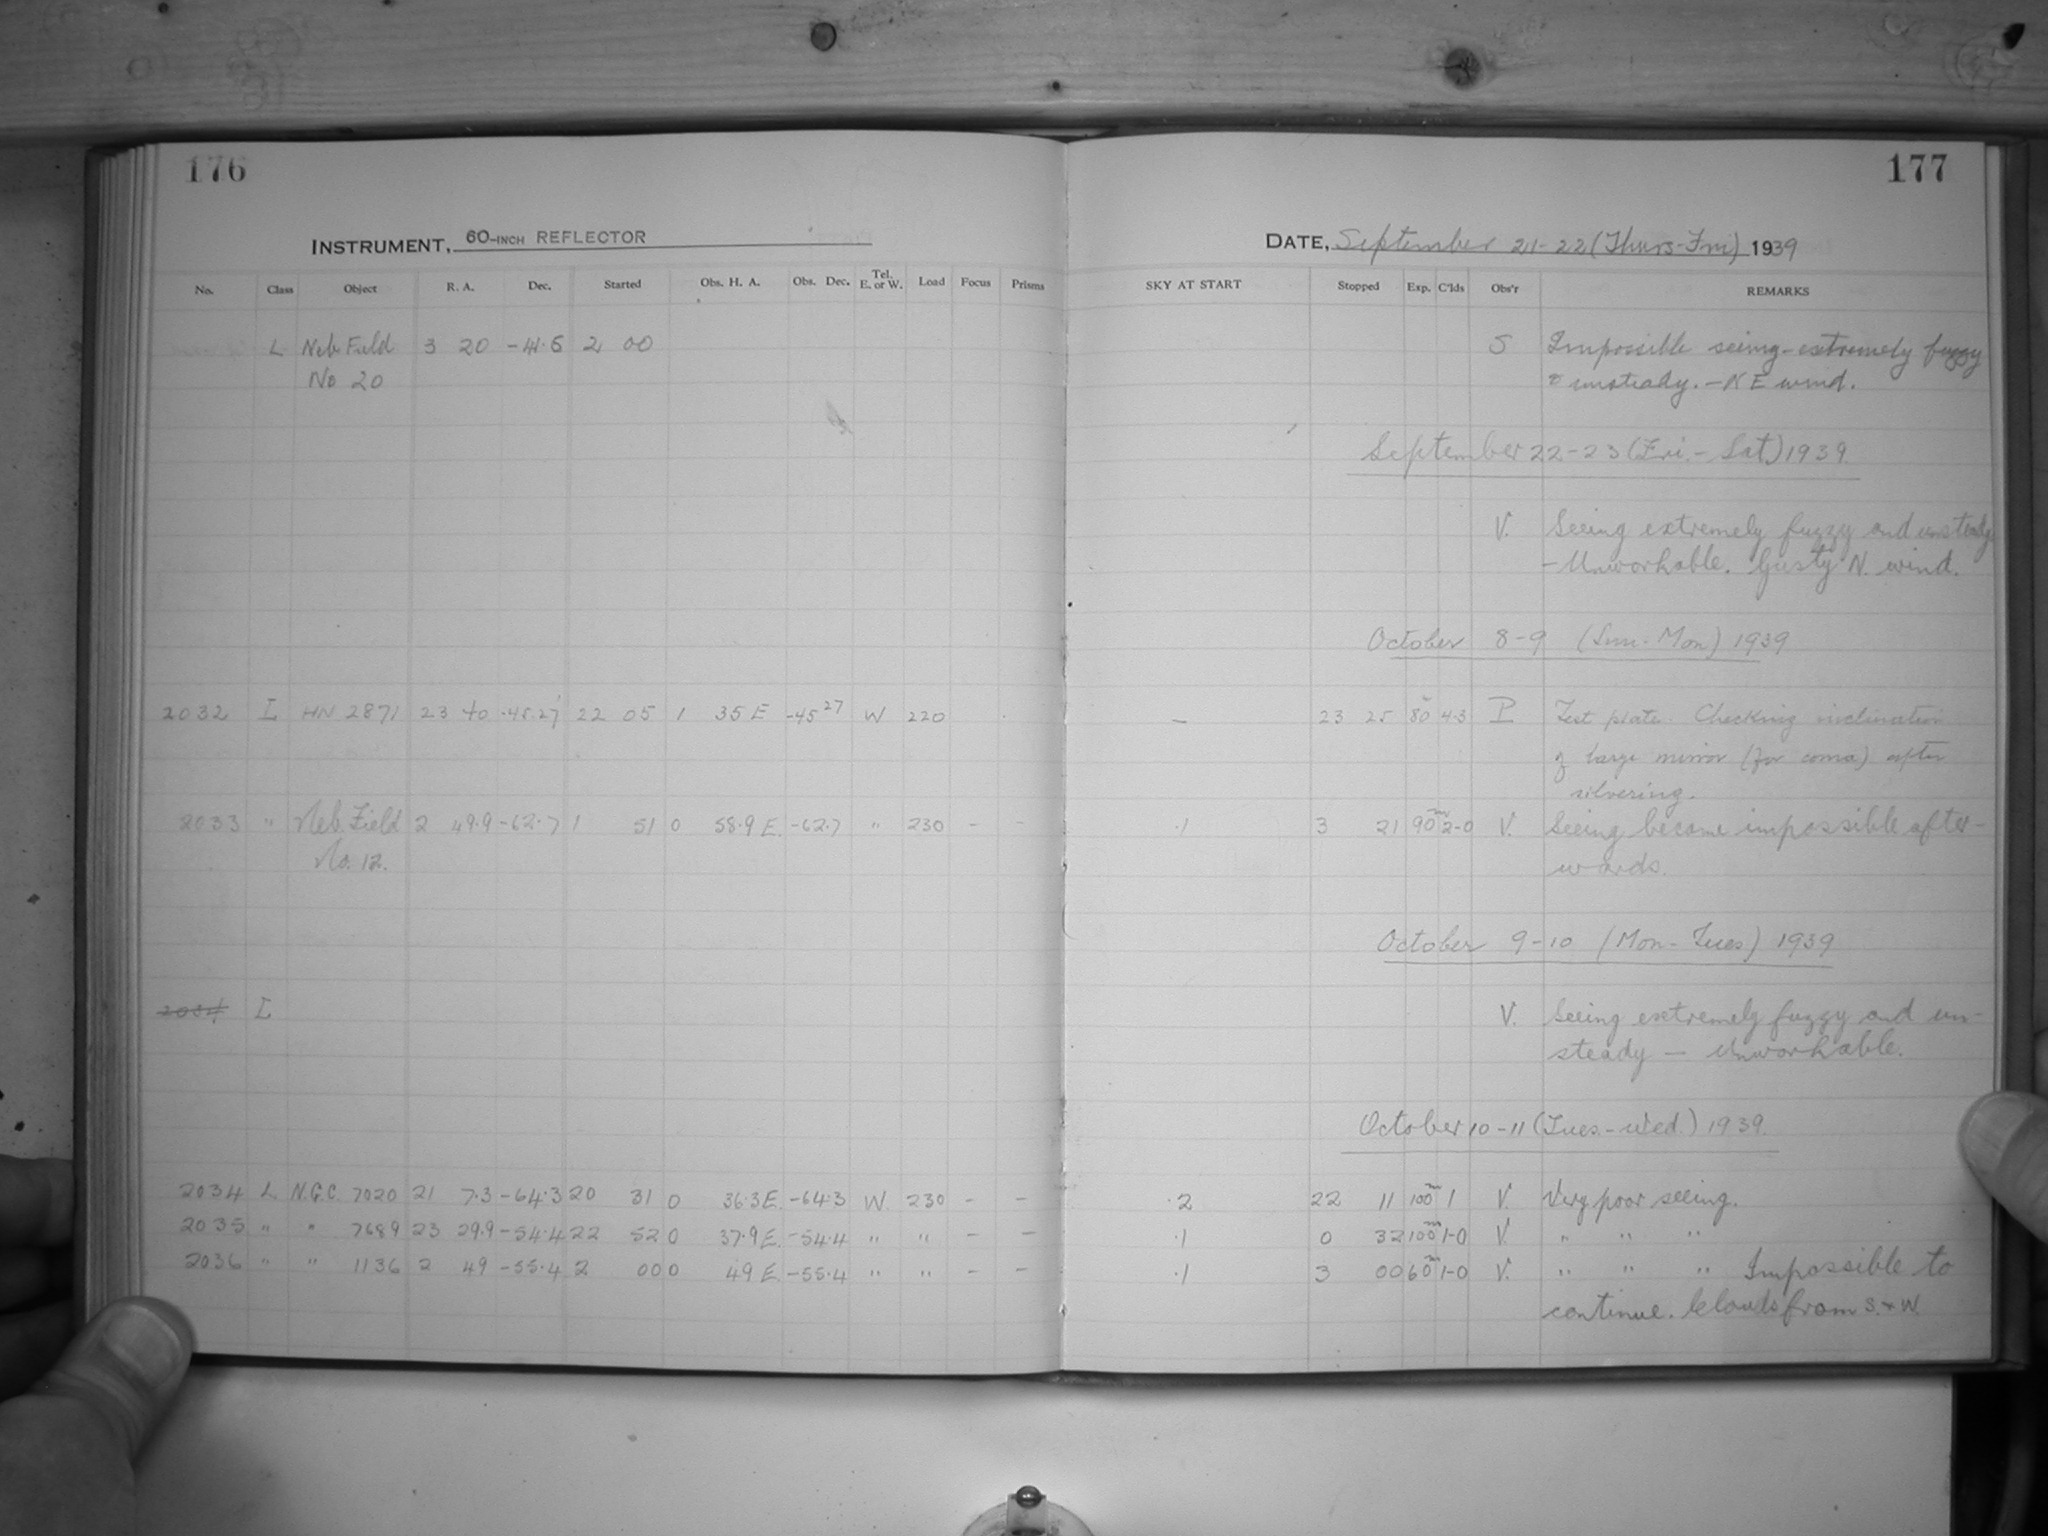 176
177
INSTRUMENT, 60-INCH REFLECTOR
DATE, September 21-22 (Thurs-Fri) 1939
No. Class Object R. A. Dec. Started Obs. H. A. Obs. Dec. Tel. E. or W. Load Focus Prisms SKY AT START Stopped Exp. C'lds Obs'r REMARKS
L Neb Field 3 20 -41.6 2 00 S Impossible seeing-extremely fuzzy
No 20 & unsteady. - N E wind.
September 22-23 (Fri. - Sat) 1939
V. Seeing extremely fuzzy and unsteady
- Unworkable. Gusty N. wind.
October 8-9 (Sun-Mon) 1939
2032 L HN 2871 23 40 -45.27 22 05 1 35 E -45 27 W 220 - 23 25 80 4-3 P Test plate. Checking inclination
of large mirror (for coma) after
silvering.
2033 " Neb. Field 2 49.9 -62.7 1 51 0 58.9 E. -62.7 " 230 - - .1 3 21 90m 2-0 V. Seeing became impossible after-
No. 12. wards.
October 9-10 (Mon-Tues.) 1939
2034 L V. Seeing extremely fuzzy and un-
steady - Unworkable.
October 10-11 (Tues.-Wed.) 1939.
2034 L N.G.C. 7020 21 7.3 -64.3 20 31 0 36.3 E. -64.3 W. 230 - - .2 22 11 100m 1 V. Very poor seeing.
2035 " " 7689 23 29.9 -54.4 22 52 0 37.9 E. -54.4 " " - - .1 0 32 100m 1-0 V. " " "
2036 " " 1136 2 49 -55.4 2 00 0 49 E. -55.4 " " - - .1 3 00 60m 1-0 V. " " " Impossible to
continue. Clouds from S. & W.